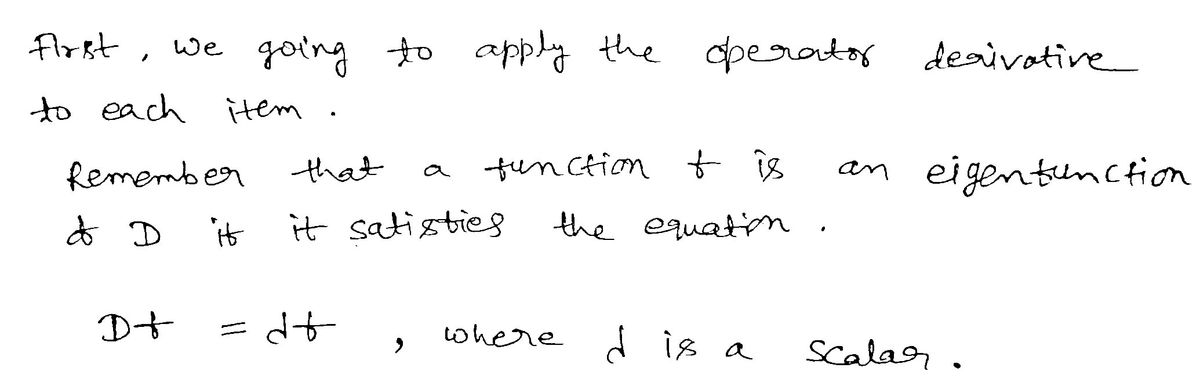 First, we going to apply the operator derivative
to each item.
Remember that a function f is an eigenfunction
of D if it satisfies the equation.
Df = df, where d is a scalar.